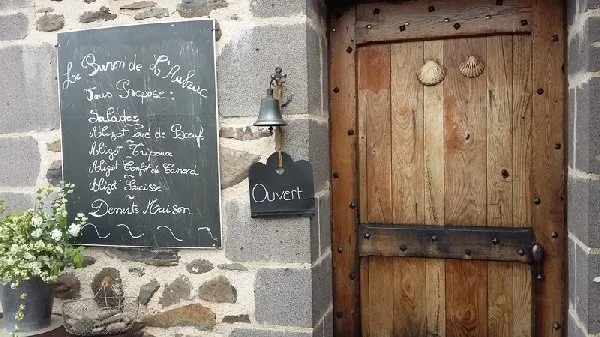 Le Buron de L'Aubrac
Vous Propose :
Salades
Aligot Pavé de Bœuf
Aligot Tripoux
Aligot Confit de Canard
Aligot Saucisse
Desserts Maison
Ouvert